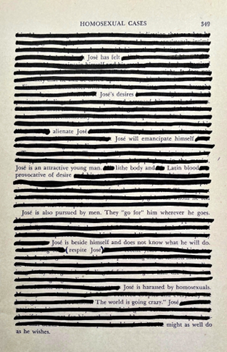 HOMOSEXUAL CASES 349
José has felt
José's desires
alienate José
José will emancipate himself
José is an attractive young man lithe body and Latin blood
provocative of desire
José is also pursued by men. They "go for" him wherever he goes.
José is beside himself and does not know what he will do.
(respite José)
José is harassed by homosexuals.
The world is going crazy." José
might as well do
as he wishes.